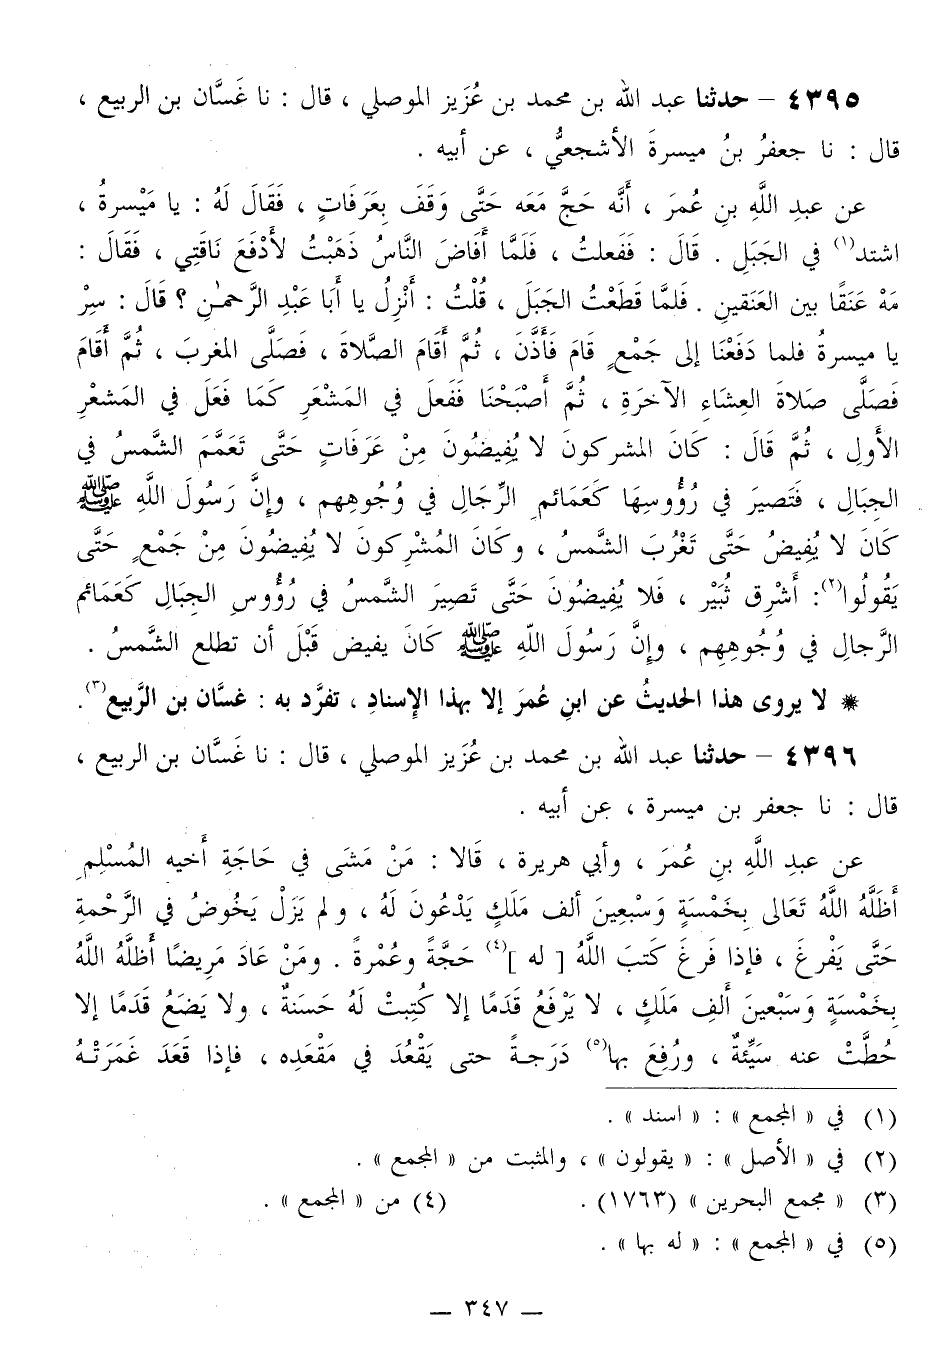 ٤٣٩٥ – حدثنا عبد الله بن محمد بن عُزَيز الموصلي ، قال : نا غَسَّان بن الربيع ،
قال : نا جعفرُ بنُ ميسرةَ الأشجعيُّ ، عن أبيه .
عن عبدِ اللَّهِ بنِ عُمرَ ، أَنَّه حَجَّ مَعَه حَتَّى وَقَفَ بِعَرَفَاتٍ ، فَقَالَ لَهُ : يا مَيْسرةُ ،
اشتد(١) في الجَبَلِ . قَالَ : فَفَعلتُ ، فَلَمَّا أَفَاضَ النَّاسُ ذَهَبْتُ لأَدْفَعَ نَاقَتِي ، فَقَالَ :
مَهْ عَنَقًا بين العَنَقينِ . فَلمَّا قَطَعْتُ الجَبَلَ ، قُلْتُ : أَنْزِلُ يا أَبَا عَبْدِ الرَّحمٰنِ ؟ قَالَ : سِرْ
يا ميسرةُ فلما دَفَعْنَا إلى جَمْعٍ قَامَ فَأَذَّنَ ، ثُمَّ أَقَامَ الصَّلاةَ ، فَصَلَّى المغربَ ، ثُمَّ أَقَامَ
فَصَلَّى صَلاةَ العِشَاءِ الآخرَةِ ، ثُمَّ أَصْبَحْنَا فَفَعلَ في المَشْعَرِ كَمَا فَعَلَ في المَشعْرِ
الأَولِ ، ثُمَّ قَالَ : كَانَ المشركونَ لا يُفِيضُونَ مِنْ عَرَفَاتٍ حَتَّى تَعَمَّمَ الشَّمسُ في
الجِبَالِ ، فَتَصيرَ في رُؤُوسِهَا كَعَمَائمِ الرِّجَالِ في وُجُوهِهم ، وإِنَّ رَسُولَ اللَّهِ ﷺ
كَانَ لا يُفِيضُ حَتَّى تَغْرُبَ الشَّمسُ ، وكَانَ المُشْرِكونَ لا يُفِيضُونَ مِنْ جَمْعٍ حَتَّى
يَقُولُوا(٢): أَشْرِق ثُبَيْر ، فَلا يُفِيضُونَ حَتَّى تَصِيرَ الشَّمسُ في رُؤُوسِ الجِبَالِ كَعَمَائم
الرِّجالِ في وُجُوهِهِم ، وإِنَّ رَسُولَ اللّهِ ﷺ كَانَ يفيض قَبْلَ أن تطلع الشَّمسُ .
* لا يروى هذا الحديثُ عن ابنِ عُمرَ إلا بهذا الإِسنادِ ، تفرَّد به : غسَّان بن الرَّبيع(٣).
٤٣٩٦ – حدثنا عبد الله بن محمد بن عُزَيز الموصلي ، قال : نا غَسَّان بن الربيع ،
قال : نا جعفر بن ميسرة ، عن أبيه .
عن عبدِ اللَّهِ بنِ عُمَرَ ، وأبي هريرة ، قَالا : مَنْ مَشَى في حَاجَةِ أَخيه المُسْلِمِ
أَظَلَّهُ اللَّهُ تَعَالى بِخَمْسَةٍ وَسَبْعِينَ ألف مَلَكٍ يَدْعُونَ لَهُ ، ولم يَزَلْ يَخُوضُ في الرَّحْمةِ
حَتَّى يَفْرغَ ، فإذا فَرغَ كَتبَ اللَّهُ [ له ](٤) حَجَّةً وعُمْرةً . ومَنْ عَادَ مَرِيضًا أَظلَّهُ اللَّهُ
بِخَمْسةٍ وَسَبْعينَ أَلفِ مَلَكٍ ، لا يَرْفَعُ قَدَمًا إلا كُتِبتْ لَهُ حَسنَةٌ ، ولا يَضَعُ قَدَمًا إلا
حُطَّتْ عنه سَيِّئةٌ ، ورُفِعَ بها(٥) دَرَجةً حتى يَقْعُدَ في مَقْعَدِه ، فإذا قَعَدَ غَمَرَتْهُ
(١) في « المجمع » : « اسند » .
(٢) في « الأصل » : « يقولون » ، والمثبت من « المجمع » .
(٣) « مجمع البحرين » (١٧٦٣) . (٤) من « المجمع » .
(٥) في « المجمع » : « له بها » .
— ٣٤٧ —